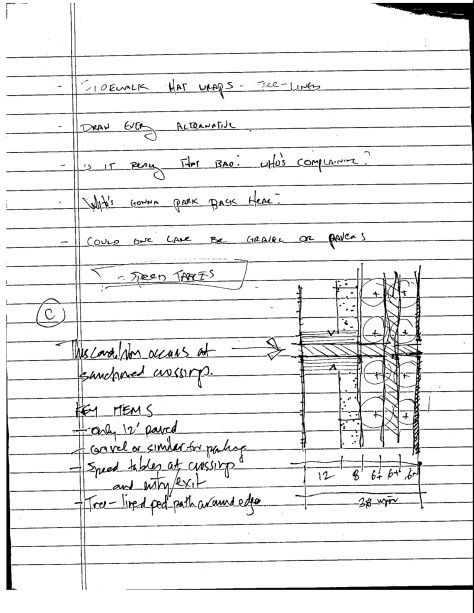 - SIDEWALK THAT WRAPS - TREE-LINED
- DRAW EVERY ALTERNATIVE
- IS IT REALLY THAT BAD? WHO'S COMPLAINING?
- WHO'S GONNA PARK BACK HERE?
- COULD ONE LANE BE GRAVEL OR PAVERS
- SPEED TABLES
C
This condition occurs at
sanctioned crossings.
KEY ITEMS
- Only 12' paved
- Gravel or similar for parking
- Speed tables at crossings
and entry/exit
- Tree-lined ped path around edge
12 8 6+ 6+ 6+
38 min